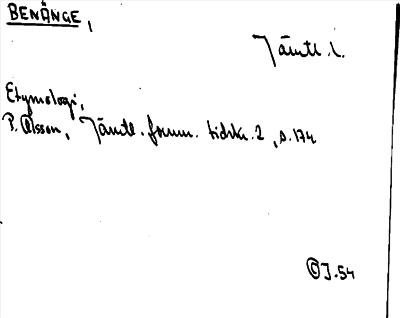 BENÄNGE,
Jämtl. l.
Etymologi,
P. Olsson, Jämtl. fornm. tidskr. 2, s. 174
© J.54